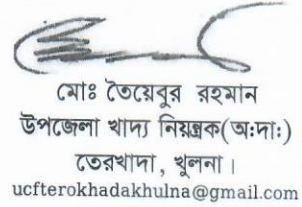 মোঃ তৈয়েবুর রহমান
উপজেলা খাদ্য নিয়ন্ত্রক(অঃদাঃ)
তেরখাদা , খুলনা ।
ucfterokhadakhulna@gmail.com